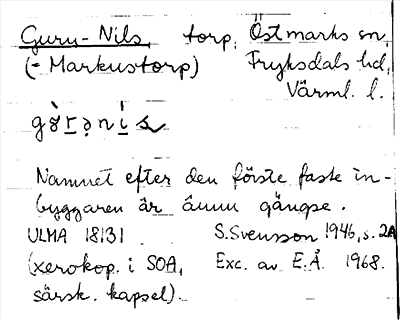 Guru-Nils, torp. Östmarks sn,
(= Markustorp) Fryksdals hd,
Värml. l.
Namnet efter den förste faste in-
byggaren är ännu gängse.
ULMA 18131 S. Svensson 1946, s. 2A
(xerokop. i SOA, Exc. av E.Å. 1968.
särsk. kapsel).